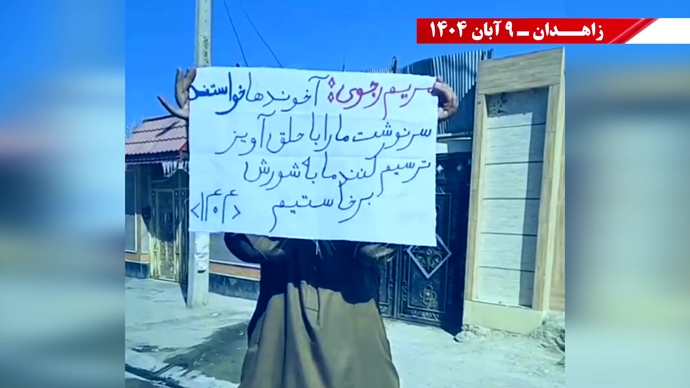 زاهـــدان ــ ۹ آبان ۱۴۰۴
مریم رجوی: آخوندها خواستند
سرنوشت ما را با حلق آویز
ترسیم کنند ما به شورش
برخاستیم